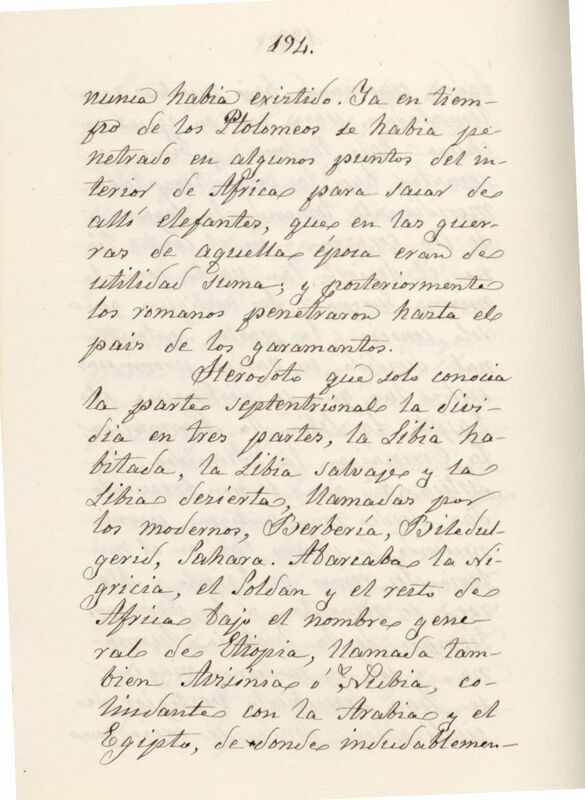 194.
nunca habia existido. Ya en tiem-
po de los Ptolomeos se habia pe-
netrado en algunos puntos del in-
terior de Africa para sacar de
allí elefantes, que en las guer-
ras de aquella época eran de
utilidad suma; y posteriormente
los romanos penetraron hasta el
pais de los garamantos.
Herodoto que solo conocia
la parte septentrional la divi-
dia en tres partes, la Libia ha-
bitada, la Libia salvaje y la
Libia dezierta, llamadas por
los modernos, Berbería, Biledul-
gerid, Sahara. Abarcaba la Ni-
gricia, el Soldan y el resto de
Africa bajo el nombre gene-
ral de Etiopia, llamada tam-
bien Avisinia ó Nubia, co-
lindante con la Arabia y el
Egipto, de donde indudablemen-